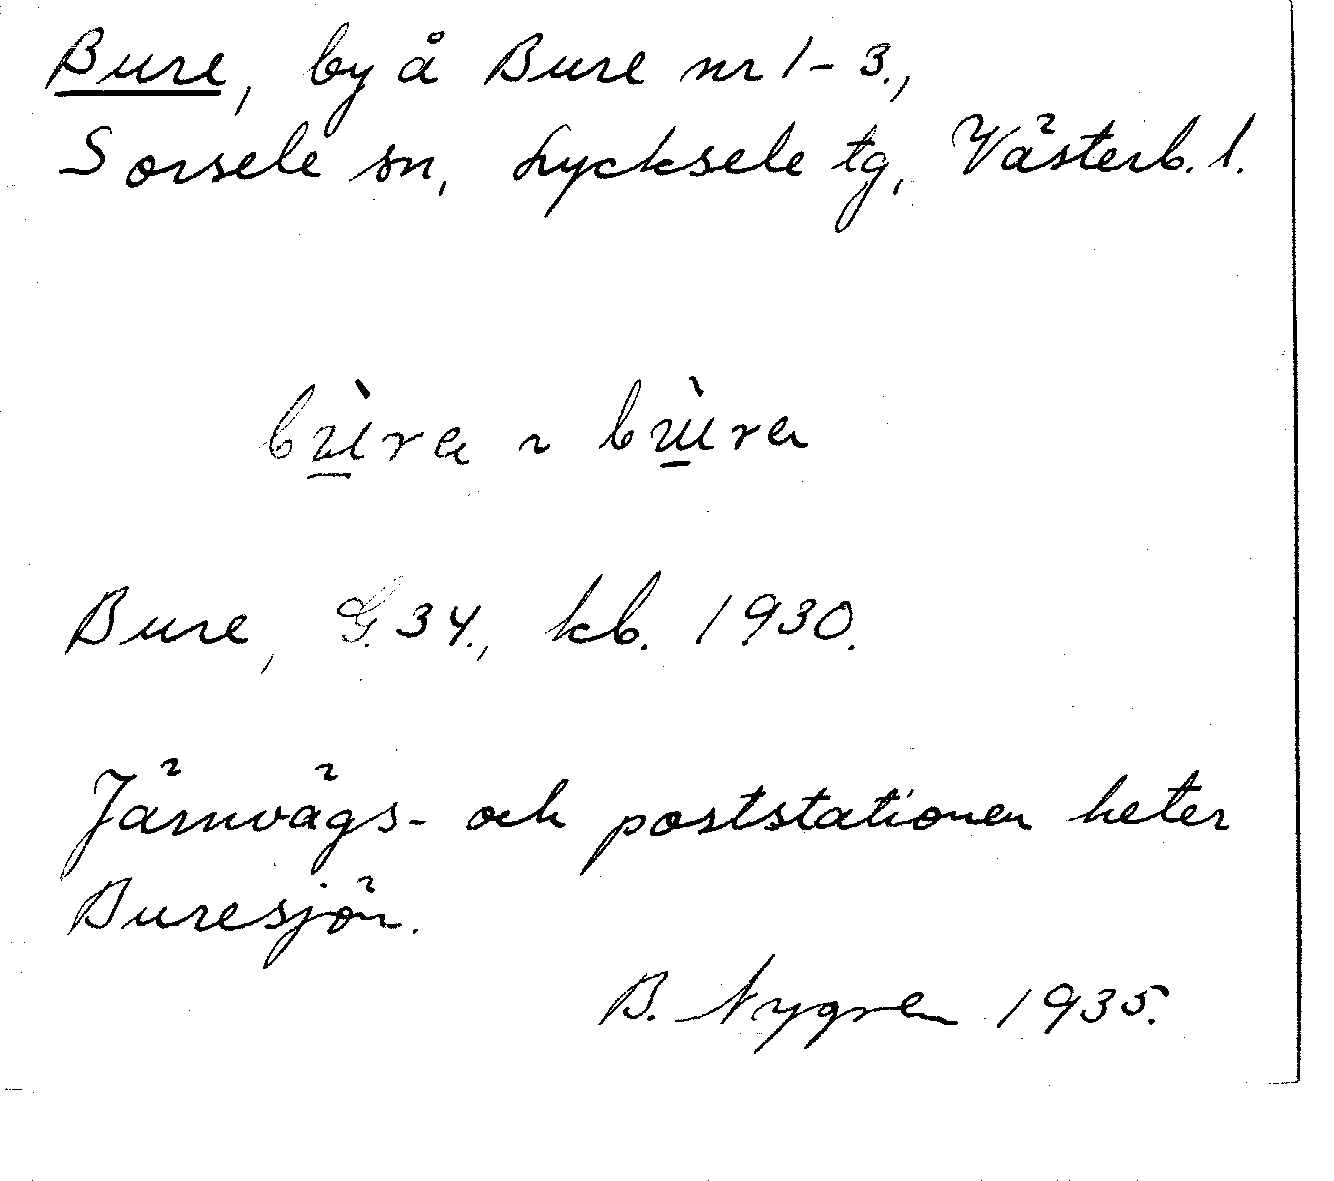 Bure, by å Bure nr 1-3.,
Sorsele sn, Lycksele tg, Västerb. l.
Bure, G. 34., kb. 1930.
Järnvägs- och poststationen heter
Buresjön.
B. Nygren 1935.